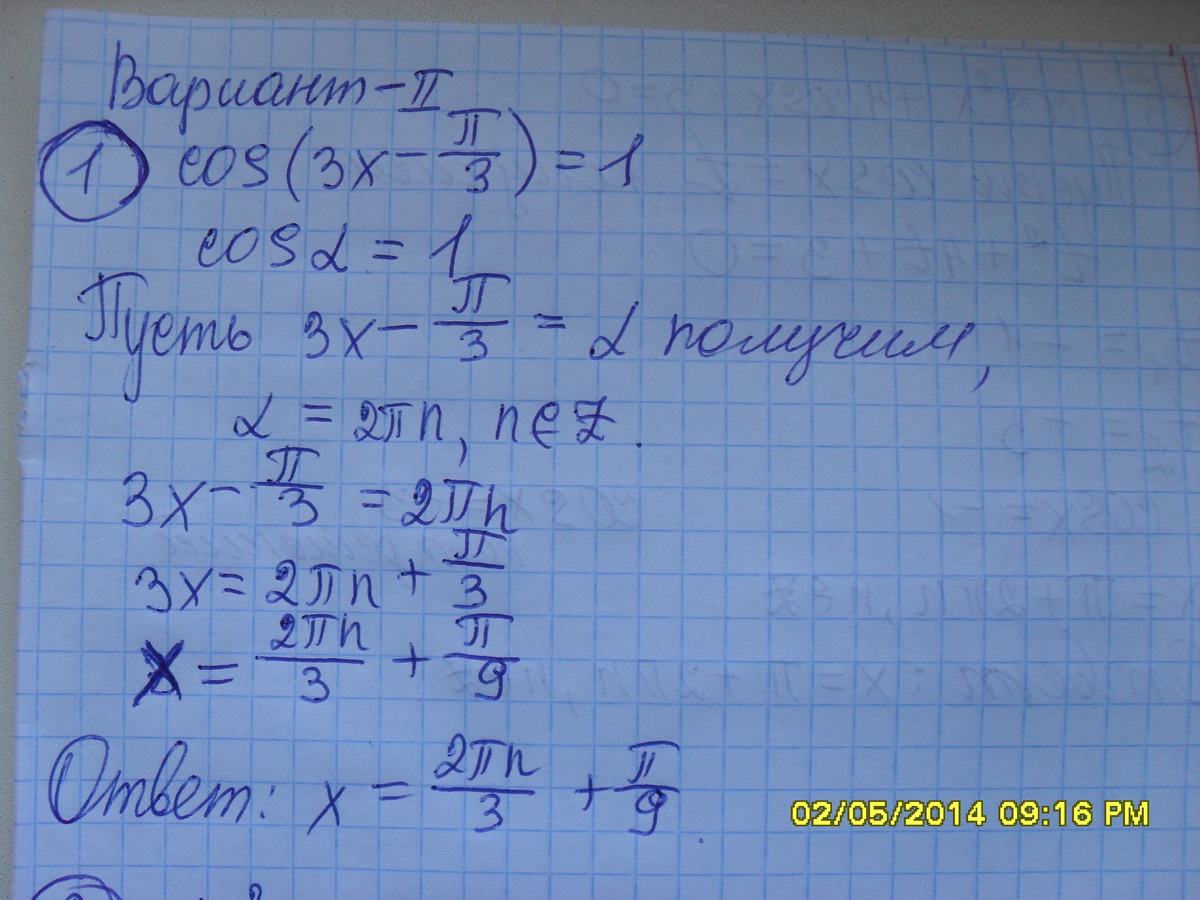 Вариант-II
1 cos(3x - π/3) = 1
cos α = 1
Пусть 3x - π/3 = α получим,
α = 2πn, n∈Z.
3x - π/3 = 2πn
3x = 2πn + π/3
x = 2πn/3 + π/9
Ответ: x = 2πn/3 + π/9.
02/05/2014 09:16 PM